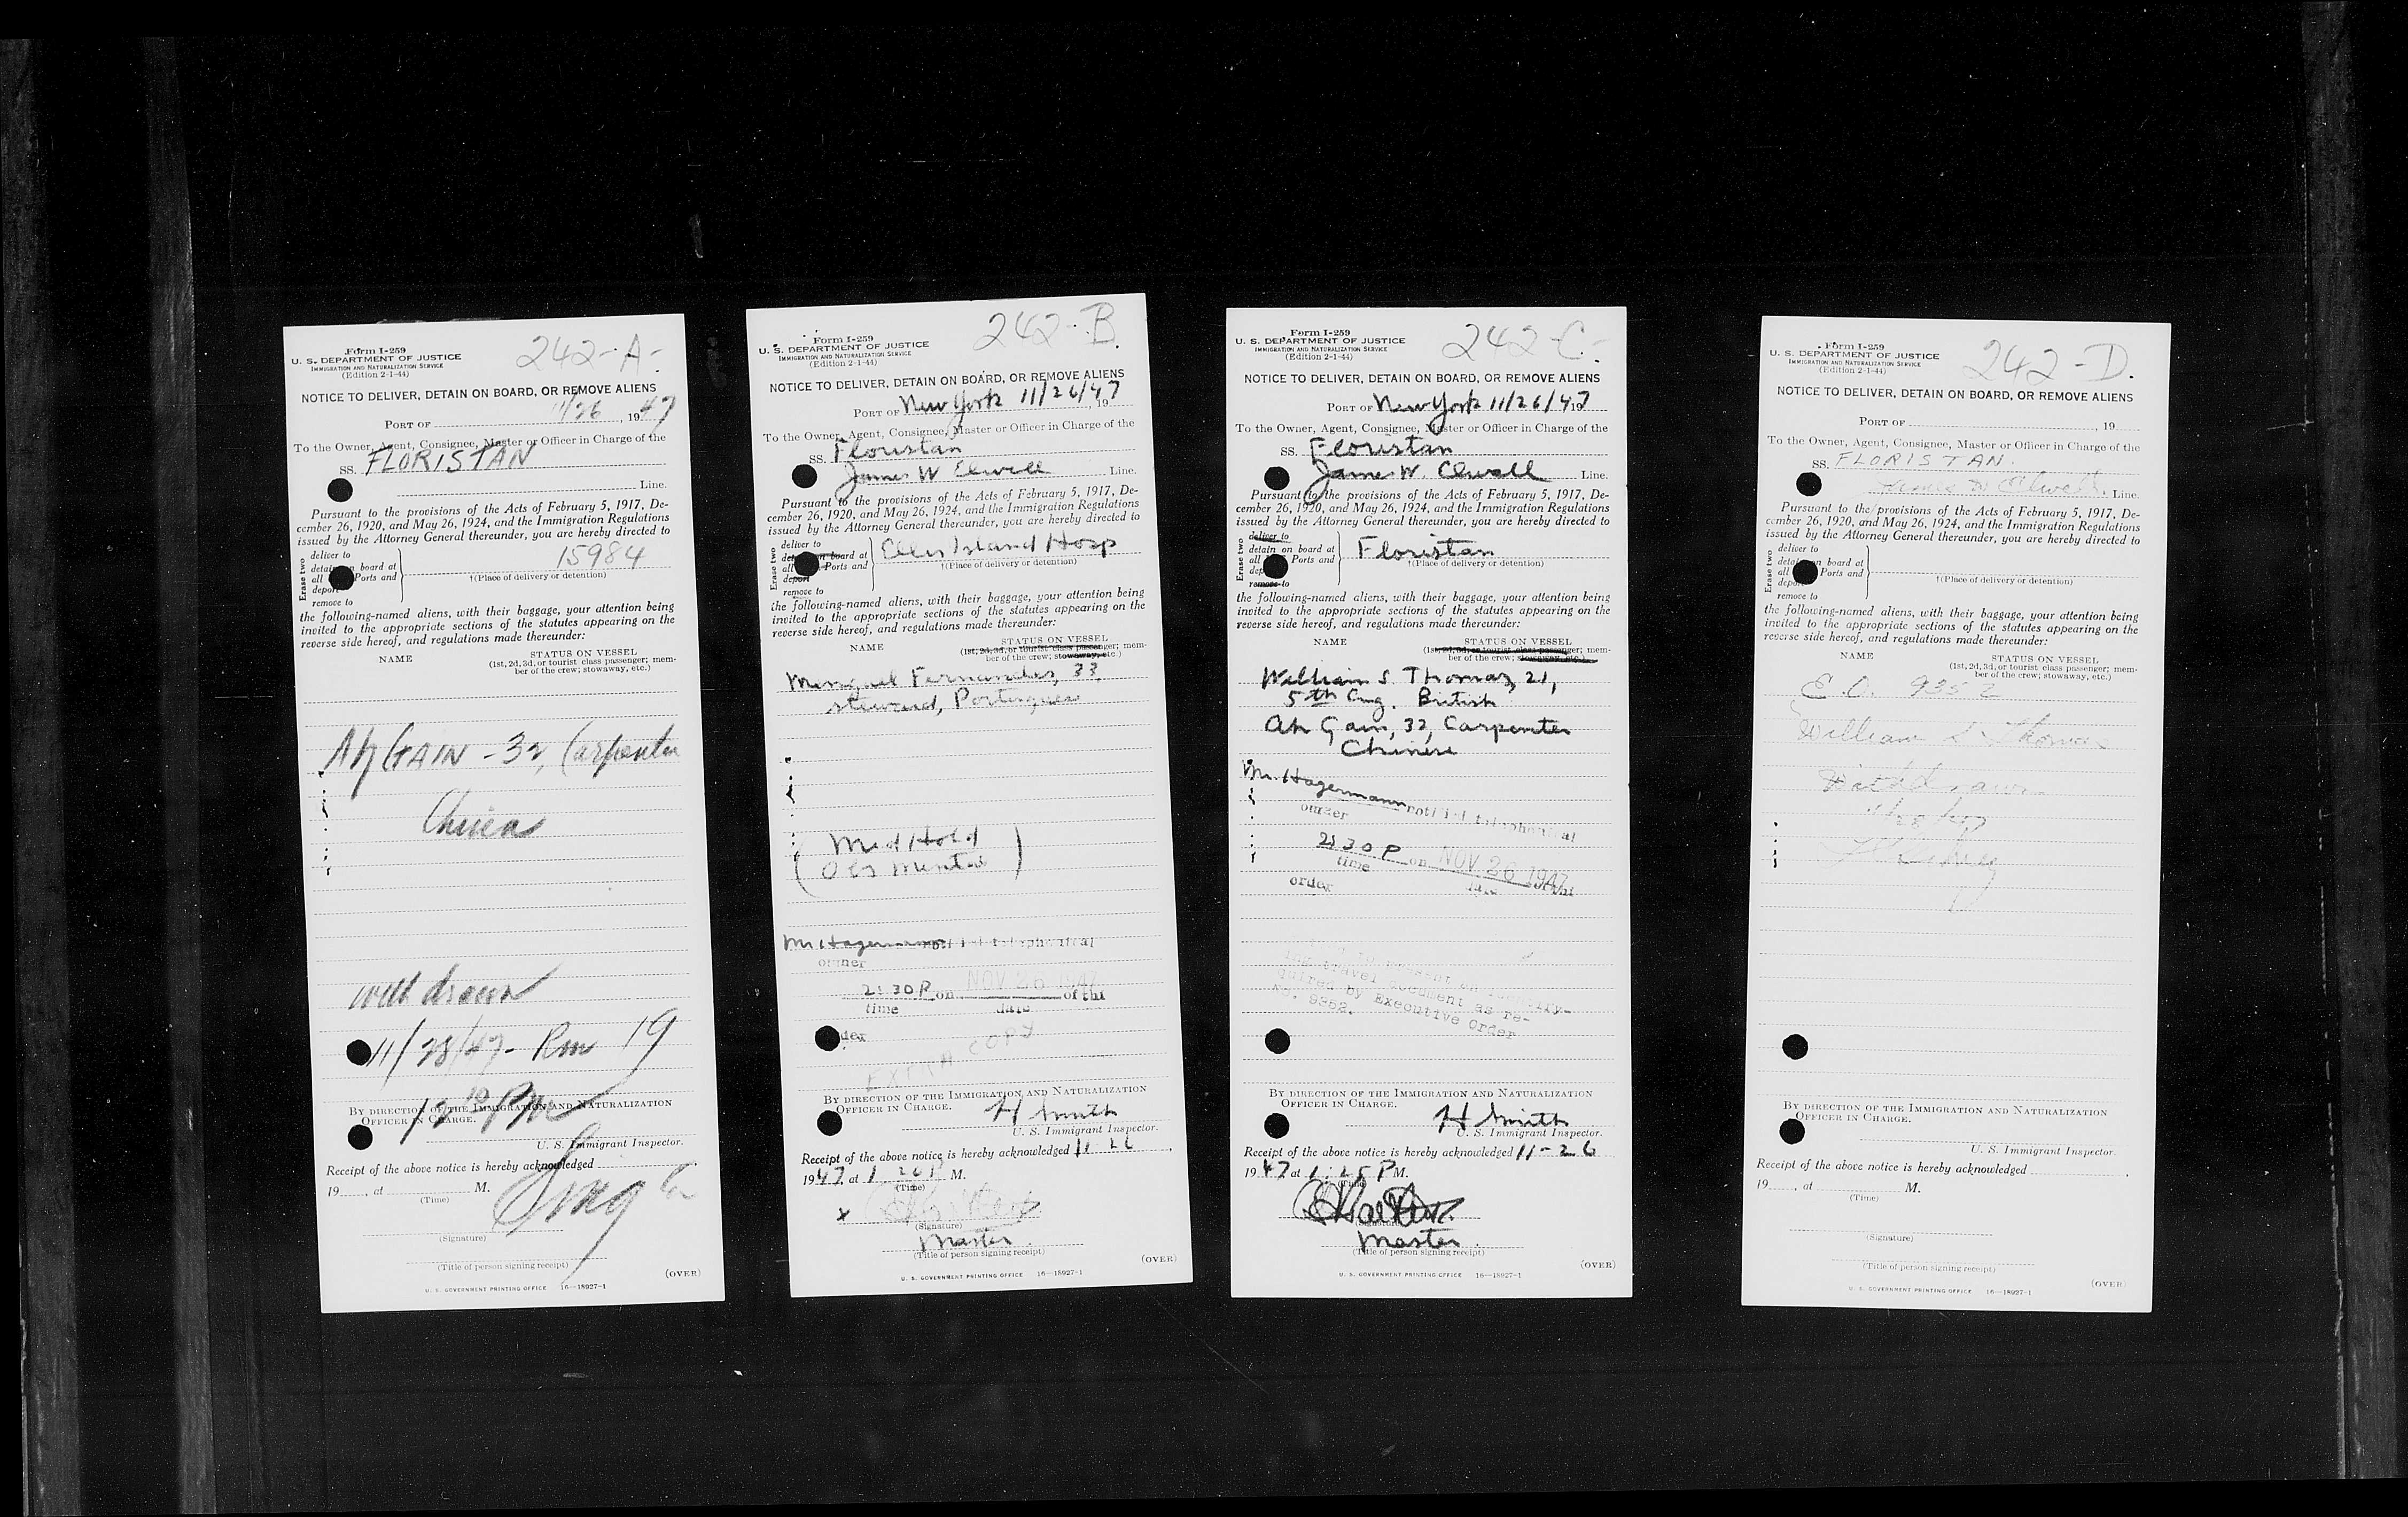 242-A-
Form I-259
U. S. DEPARTMENT OF JUSTICE
IMMIGRATION AND NATURALIZATION SERVICE
(Edition 2-1-44)
NOTICE TO DELIVER, DETAIN ON BOARD, OR REMOVE ALIENS
PORT OF 11/26, 1947
To the Owner, Agent, Consignee, Master or Officer in Charge of the
SS. FLORISTAN
Line.
Pursuant to the provisions of the Acts of February 5, 1917, De-
cember 26, 1920, and May 26, 1924, and the Immigration Regulations
issued by the Attorney General thereunder, you are hereby directed to
Erase two
deliver to
detain on board at
all Ports and
deport
remove to
15984
†(Place of delivery or detention)
the following-named aliens, with their baggage, your attention being
invited to the appropriate sections of the statutes appearing on the
reverse side hereof, and regulations made thereunder:
NAME
STATUS ON VESSEL
(1st, 2d, 3d, or tourist class passenger; mem-
ber of the crew; stowaway, etc.)
Ah GAIN - 32, Carpenter
China
withdrawn
11/28/47 - Rm 19
12 10 PM
BY DIRECTION OF THE IMMIGRATION AND NATURALIZATION
OFFICER IN CHARGE.
U. S. Immigrant Inspector.
Receipt of the above notice is hereby acknowledged
19, at M.
(Time)
(Signature)
(Title of person signing receipt)
(OVER)
U. S. GOVERNMENT PRINTING OFFICE 16—18927-1
242-B
Form I-259
U. S. DEPARTMENT OF JUSTICE
IMMIGRATION AND NATURALIZATION SERVICE
(Edition 2-1-44)
NOTICE TO DELIVER, DETAIN ON BOARD, OR REMOVE ALIENS
PORT OF New York 11/26/47, 19
To the Owner, Agent, Consignee, Master or Officer in Charge of the
SS. Floristan
James W Elwell Line.
Pursuant to the provisions of the Acts of February 5, 1917, De-
cember 26, 1920, and May 26, 1924, and the Immigration Regulations
issued by the Attorney General thereunder, you are hereby directed to
Erase two
deliver to
detain on board at
all Ports and
deport
remove to
Ellis Island Hosp
†(Place of delivery or detention)
the following-named aliens, with their baggage, your attention being
invited to the appropriate sections of the statutes appearing on the
reverse side hereof, and regulations made thereunder:
NAME
STATUS ON VESSEL
(1st, 2d, 3d, or tourist class passenger; mem-
ber of the crew; stowaway, etc.)
Minguel Fernandes, 33,
steward, Portuguese
(Med Hold
Obs Mental)
Mr. Hagermann notified telephonical
owner
2:30 P on NOV 26 1947 of the
time date
order
EXTRA COPY
BY DIRECTION OF THE IMMIGRATION AND NATURALIZATION
OFFICER IN CHARGE.
H Smith
U. S. Immigrant Inspector.
Receipt of the above notice is hereby acknowledged 11 26
1947, at 1 26 P M.
(Time)
x
(Signature)
Master
(Title of person signing receipt)
(OVER)
U. S. GOVERNMENT PRINTING OFFICE 16—18927-1
242-C-
Form I-259
U. S. DEPARTMENT OF JUSTICE
IMMIGRATION AND NATURALIZATION SERVICE
(Edition 2-1-44)
NOTICE TO DELIVER, DETAIN ON BOARD, OR REMOVE ALIENS
PORT OF New York 11/26/47, 19
To the Owner, Agent, Consignee, Master or Officer in Charge of the
SS. Floristan
James W. Elwell Line.
Pursuant to the provisions of the Acts of February 5, 1917, De-
cember 26, 1920, and May 26, 1924, and the Immigration Regulations
issued by the Attorney General thereunder, you are hereby directed to
Erase two
deliver to
detain on board at
all Ports and
deport
remove to
Floristan
†(Place of delivery or detention)
the following-named aliens, with their baggage, your attention being
invited to the appropriate sections of the statutes appearing on the
reverse side hereof, and regulations made thereunder:
NAME
STATUS ON VESSEL
(1st, 2d, 3d, or tourist class passenger; mem-
ber of the crew; stowaway, etc.)
William S. Thomas, 21,
5th Eng. British
Ah Gain, 32, Carpenter
Chinese
Mr. Hagermann notified telephonical
owner
2:30 P on NOV 26 1947 of the
time date
order
to present an identify-
ing travel document as re-
quired by Executive Order
No. 9352.
BY DIRECTION OF THE IMMIGRATION AND NATURALIZATION
OFFICER IN CHARGE.
H Smith
U. S. Immigrant Inspector.
Receipt of the above notice is hereby acknowledged 11-26
1947 at 1:25 P M.
(Time)
(Signature)
Master
(Title of person signing receipt)
(OVER)
U. S. GOVERNMENT PRINTING OFFICE 16—18927-1
242-D.
Form I-259
U. S. DEPARTMENT OF JUSTICE
IMMIGRATION AND NATURALIZATION SERVICE
(Edition 2-1-44)
NOTICE TO DELIVER, DETAIN ON BOARD, OR REMOVE ALIENS
PORT OF , 19
To the Owner, Agent, Consignee, Master or Officer in Charge of the
SS. FLORISTAN.
James W Elwell, Line.
Pursuant to the provisions of the Acts of February 5, 1917, De-
cember 26, 1920, and May 26, 1924, and the Immigration Regulations
issued by the Attorney General thereunder, you are hereby directed to
Erase two
deliver to
detain on board at
all Ports and
deport
remove to
†(Place of delivery or detention)
the following-named aliens, with their baggage, your attention being
invited to the appropriate sections of the statutes appearing on the
reverse side hereof, and regulations made thereunder:
NAME
STATUS ON VESSEL
(1st, 2d, 3d, or tourist class passenger; mem-
ber of the crew; stowaway, etc.)
E.O. 9352
William S. Thomas
Withdrawn
BY DIRECTION OF THE IMMIGRATION AND NATURALIZATION
OFFICER IN CHARGE.
U. S. Immigrant Inspector.
Receipt of the above notice is hereby acknowledged
19, at M.
(Time)
(Signature)
(Title of person signing receipt)
(OVER)
U. S. GOVERNMENT PRINTING OFFICE 16—18927-1